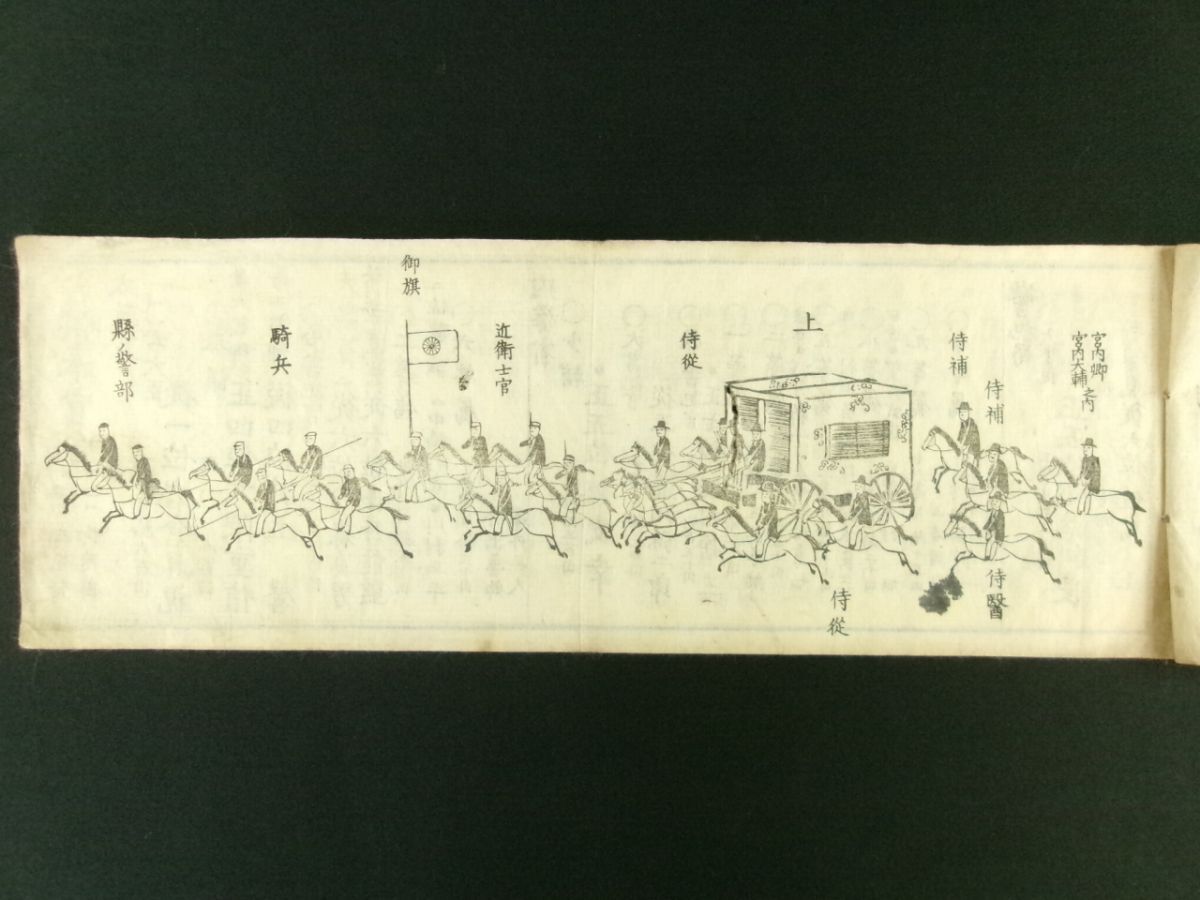 宮内卿
宮内大輔之内
侍補
侍補
侍醫
上
侍從
侍從
近衛士官
御旗
騎兵
縣ノ警部